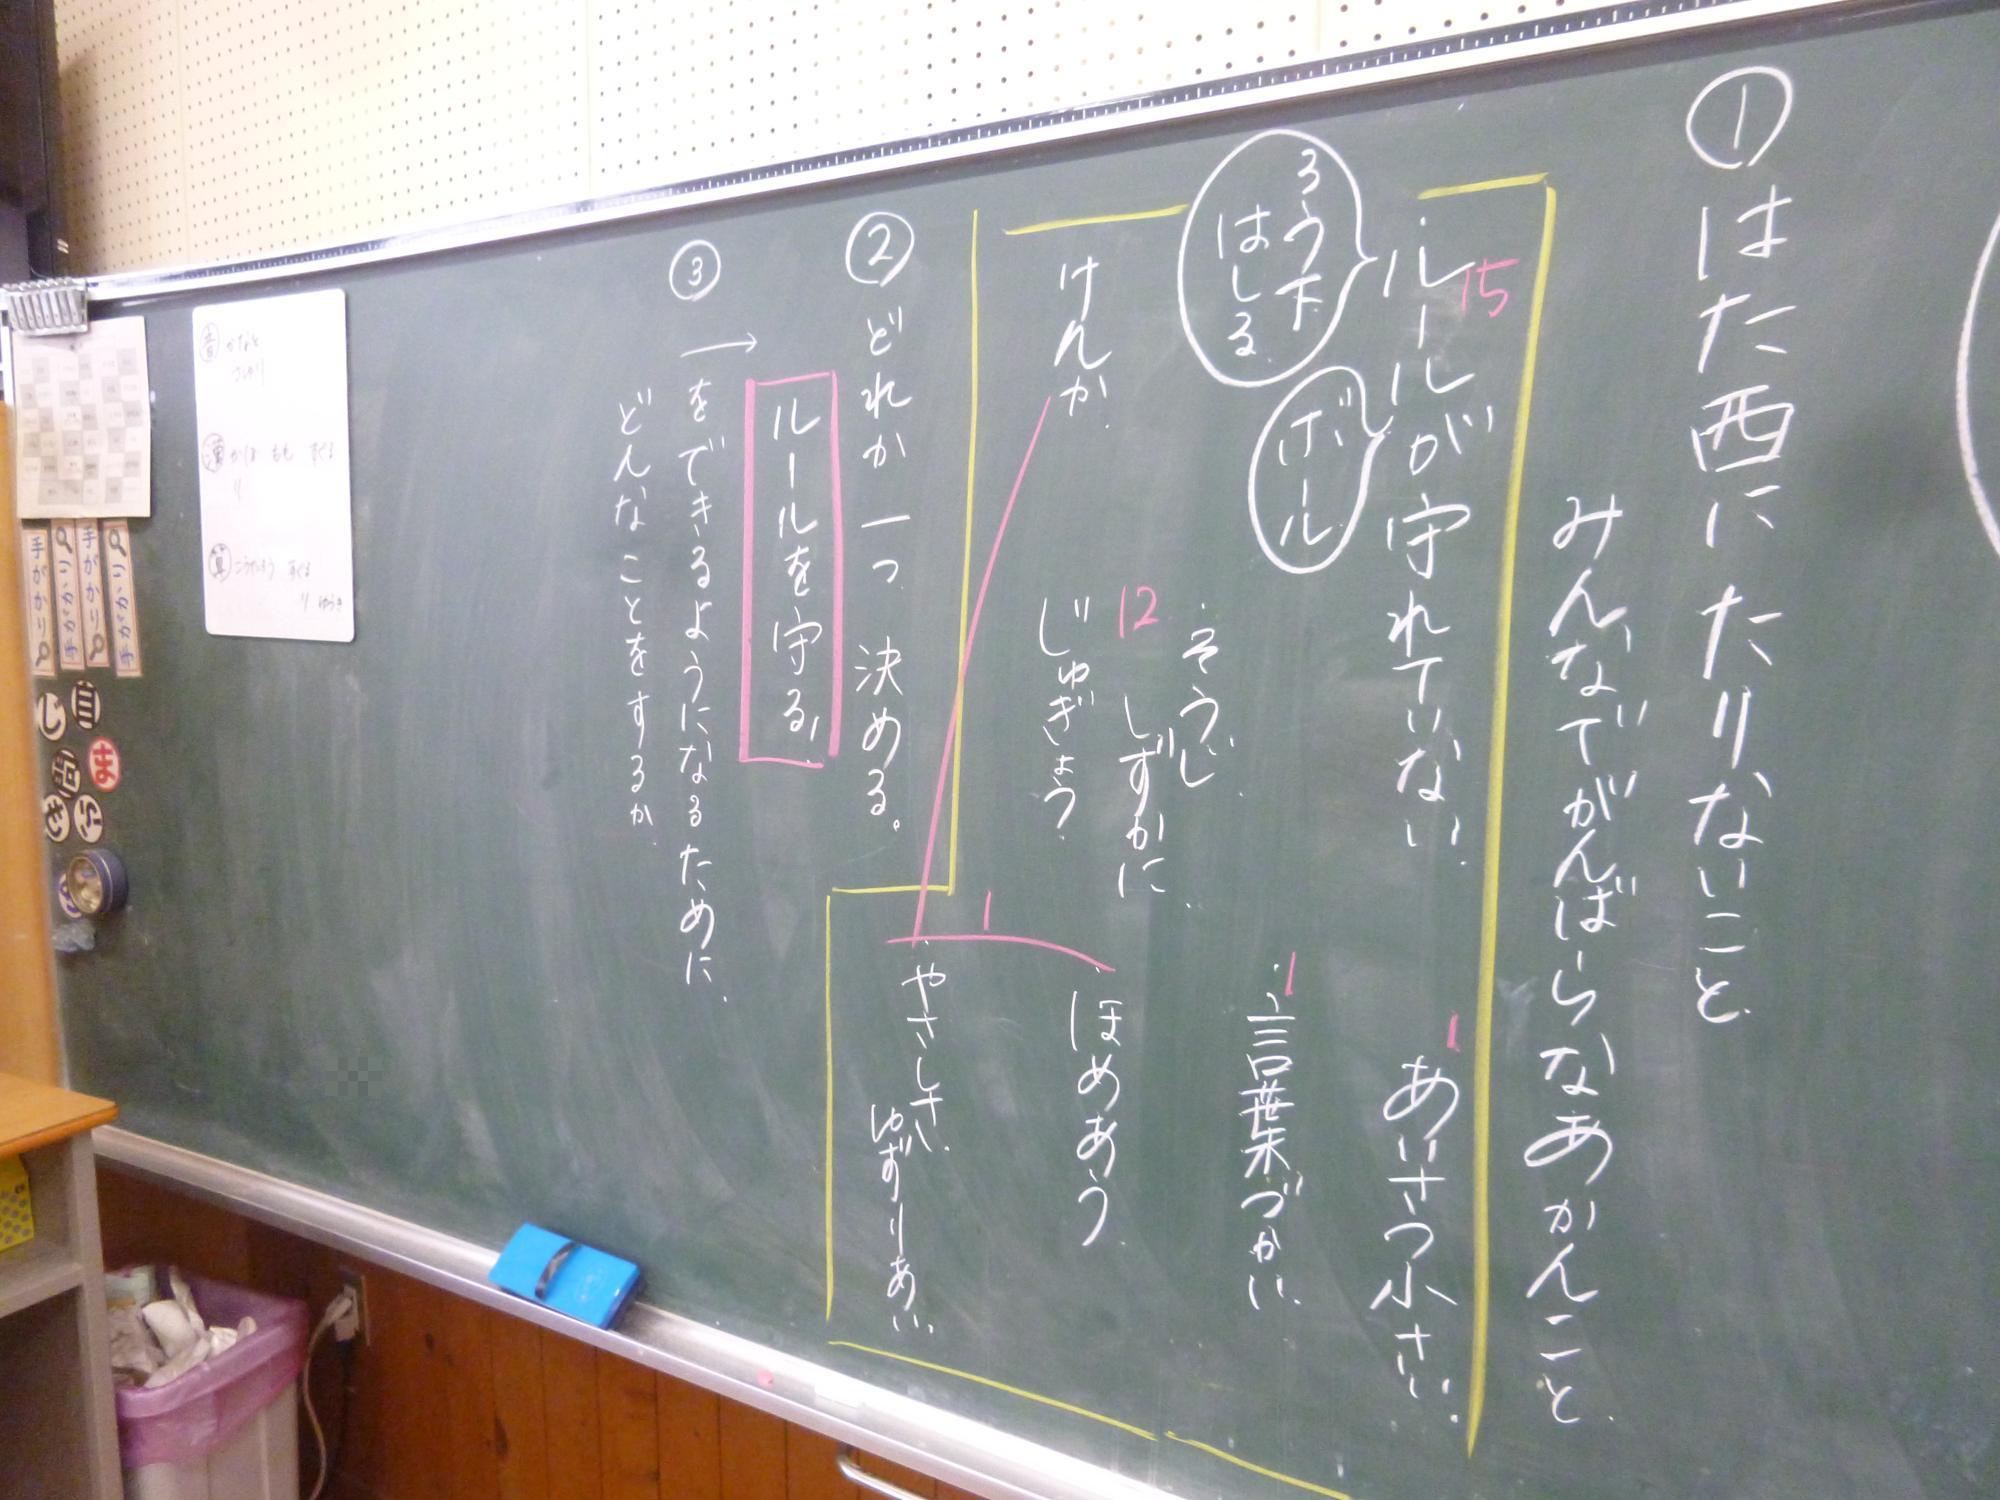 ①はた西にたりないこと
みんなでがんばらなあかんこと
15
・ルールが守れていない
ろう下
はしる
ボール
1
あいさつ小さい
・そうじ
しずかに
12
じゅぎょう
けんか
1
・言葉づかい
・ほめあう
1
・やさしさ
ゆずりあい
②どれか一つ決める。
ルールを守る
③
→をできるようになるために
どんなことをするか
音
漢
算
手がかり
手がかり
手がかり
手がかり